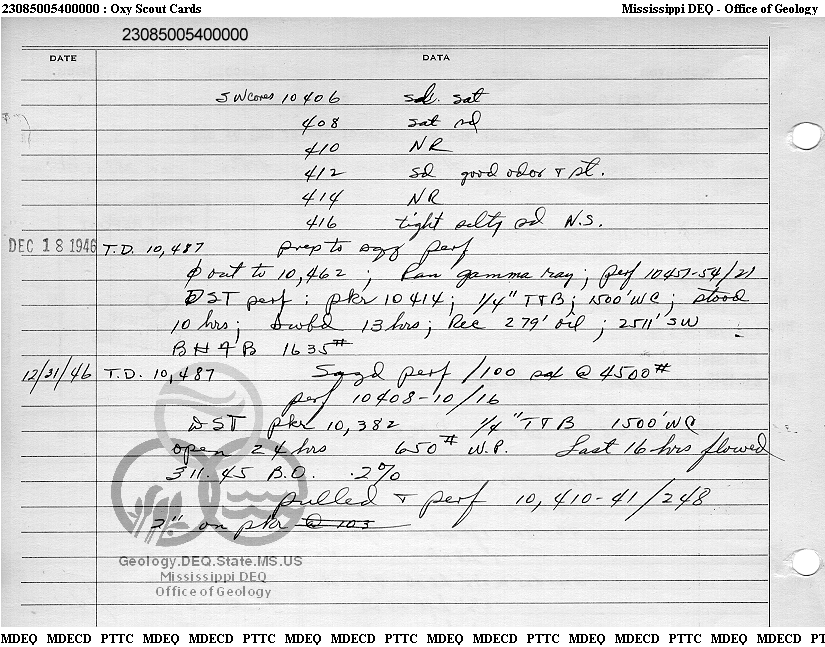 23085005400000 : Oxy Scout Cards Mississippi DEQ - Office of Geology
23085005400000
DATE DATA
SWCores 10406 sd. sat
408 sat sd
410 NR
412 sd good odor & st.
414 NR
416 tight silty sd N.S.
DEC 18 1946 T.D. 10,487 prep to sqz perf
out to 10,462 ; Ran gamma ray ; perf 10451-54/21
DST perf : pkr 10414 ; 1/4" T&B ; 1500' WC ; stood
10 hrs ; Swbd 13 hrs ; Rec 279' oil ; 2511' SW
1635#
12/31/46 T.D. 10,487 Sqzd perf /100 sax @ 4500#
perf 10408-10/16
DST pkr 10,382 1/4" T&B 1500' WC
open 24 hrs 650# W.P. Last 16 hrs flowed
311.45 B.O. .2%
pulled & perf 10,410-41/248
2" on pkr @ 103
Geology.DEQ.State.MS.US
Mississippi DEQ
Office of Geology
MDEQ MDECD PTTC MDEQ MDECD PTTC MDEQ MDECD PTTC MDEQ MDECD PTTC MDEQ MDECD PTTC MDEQ MDECD PT